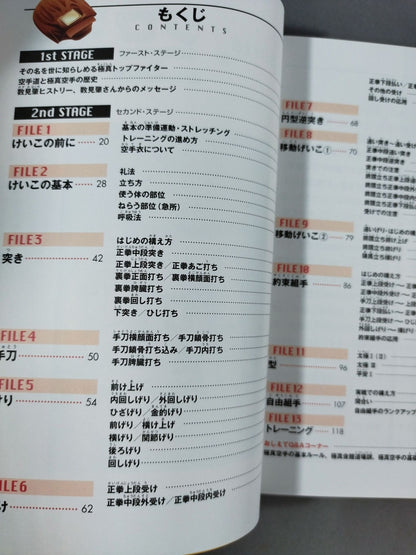 もくじ
CONTENTS
1st STAGE ファースト・ステージ
その名を世に知らしめる極真トップファイター
空手道と極真空手の歴史
数見肇ヒストリー、数見肇さんからのメッセージ
2nd STAGE セカンド・ステージ
FILE1
けいこの前に 20
基本の準備運動・ストレッチング
トレーニングの進め方
空手衣について
FILE2
けいこの基本 28
礼法
立ち方
使う体の部位
ねらう部位(急所)
呼吸法
FILE3
突き 42
はじめの構え方
正拳中段突き
正拳上段突き/正拳あご打ち
裏拳正面打ち/裏拳横顔面打ち
裏拳脾臓打ち
裏拳回し打ち
下突き/ひじ打ち
FILE4
手刀 50
手刀横顔面打ち/手刀鎖骨打ち
手刀鎖骨打ち込み/手刀内打ち
手刀脾臓打ち
FILE5
けり 54
前け上げ
内回しげり/外回しげり
ひざげり/金的げり
前げり/横け上げ
横げり/関節げり
後ろげり
回しげり
FILE6
け 62
正拳上段受け
正拳中段外受け/正拳中段内受け
正拳下段払い
その他の受け
回し受けの応用
FILE7
円型逆突き 68
FILE8
移動げいこ① 70
FILE9
移動げいこ② 79
FILE10
約束組手 86
はじめの構え方
約束組手の応用
FILE11
型 96
太極Ⅰ
太極Ⅲ
平安Ⅰ
FILE12
自由組手 107
実戦での構え方
間合い
自由組手のランクアップ
FILE13
トレーニング 118
おしえてQ&Aコーナー
極真空手の基本ルール、極真館道場訓、極真空手の基